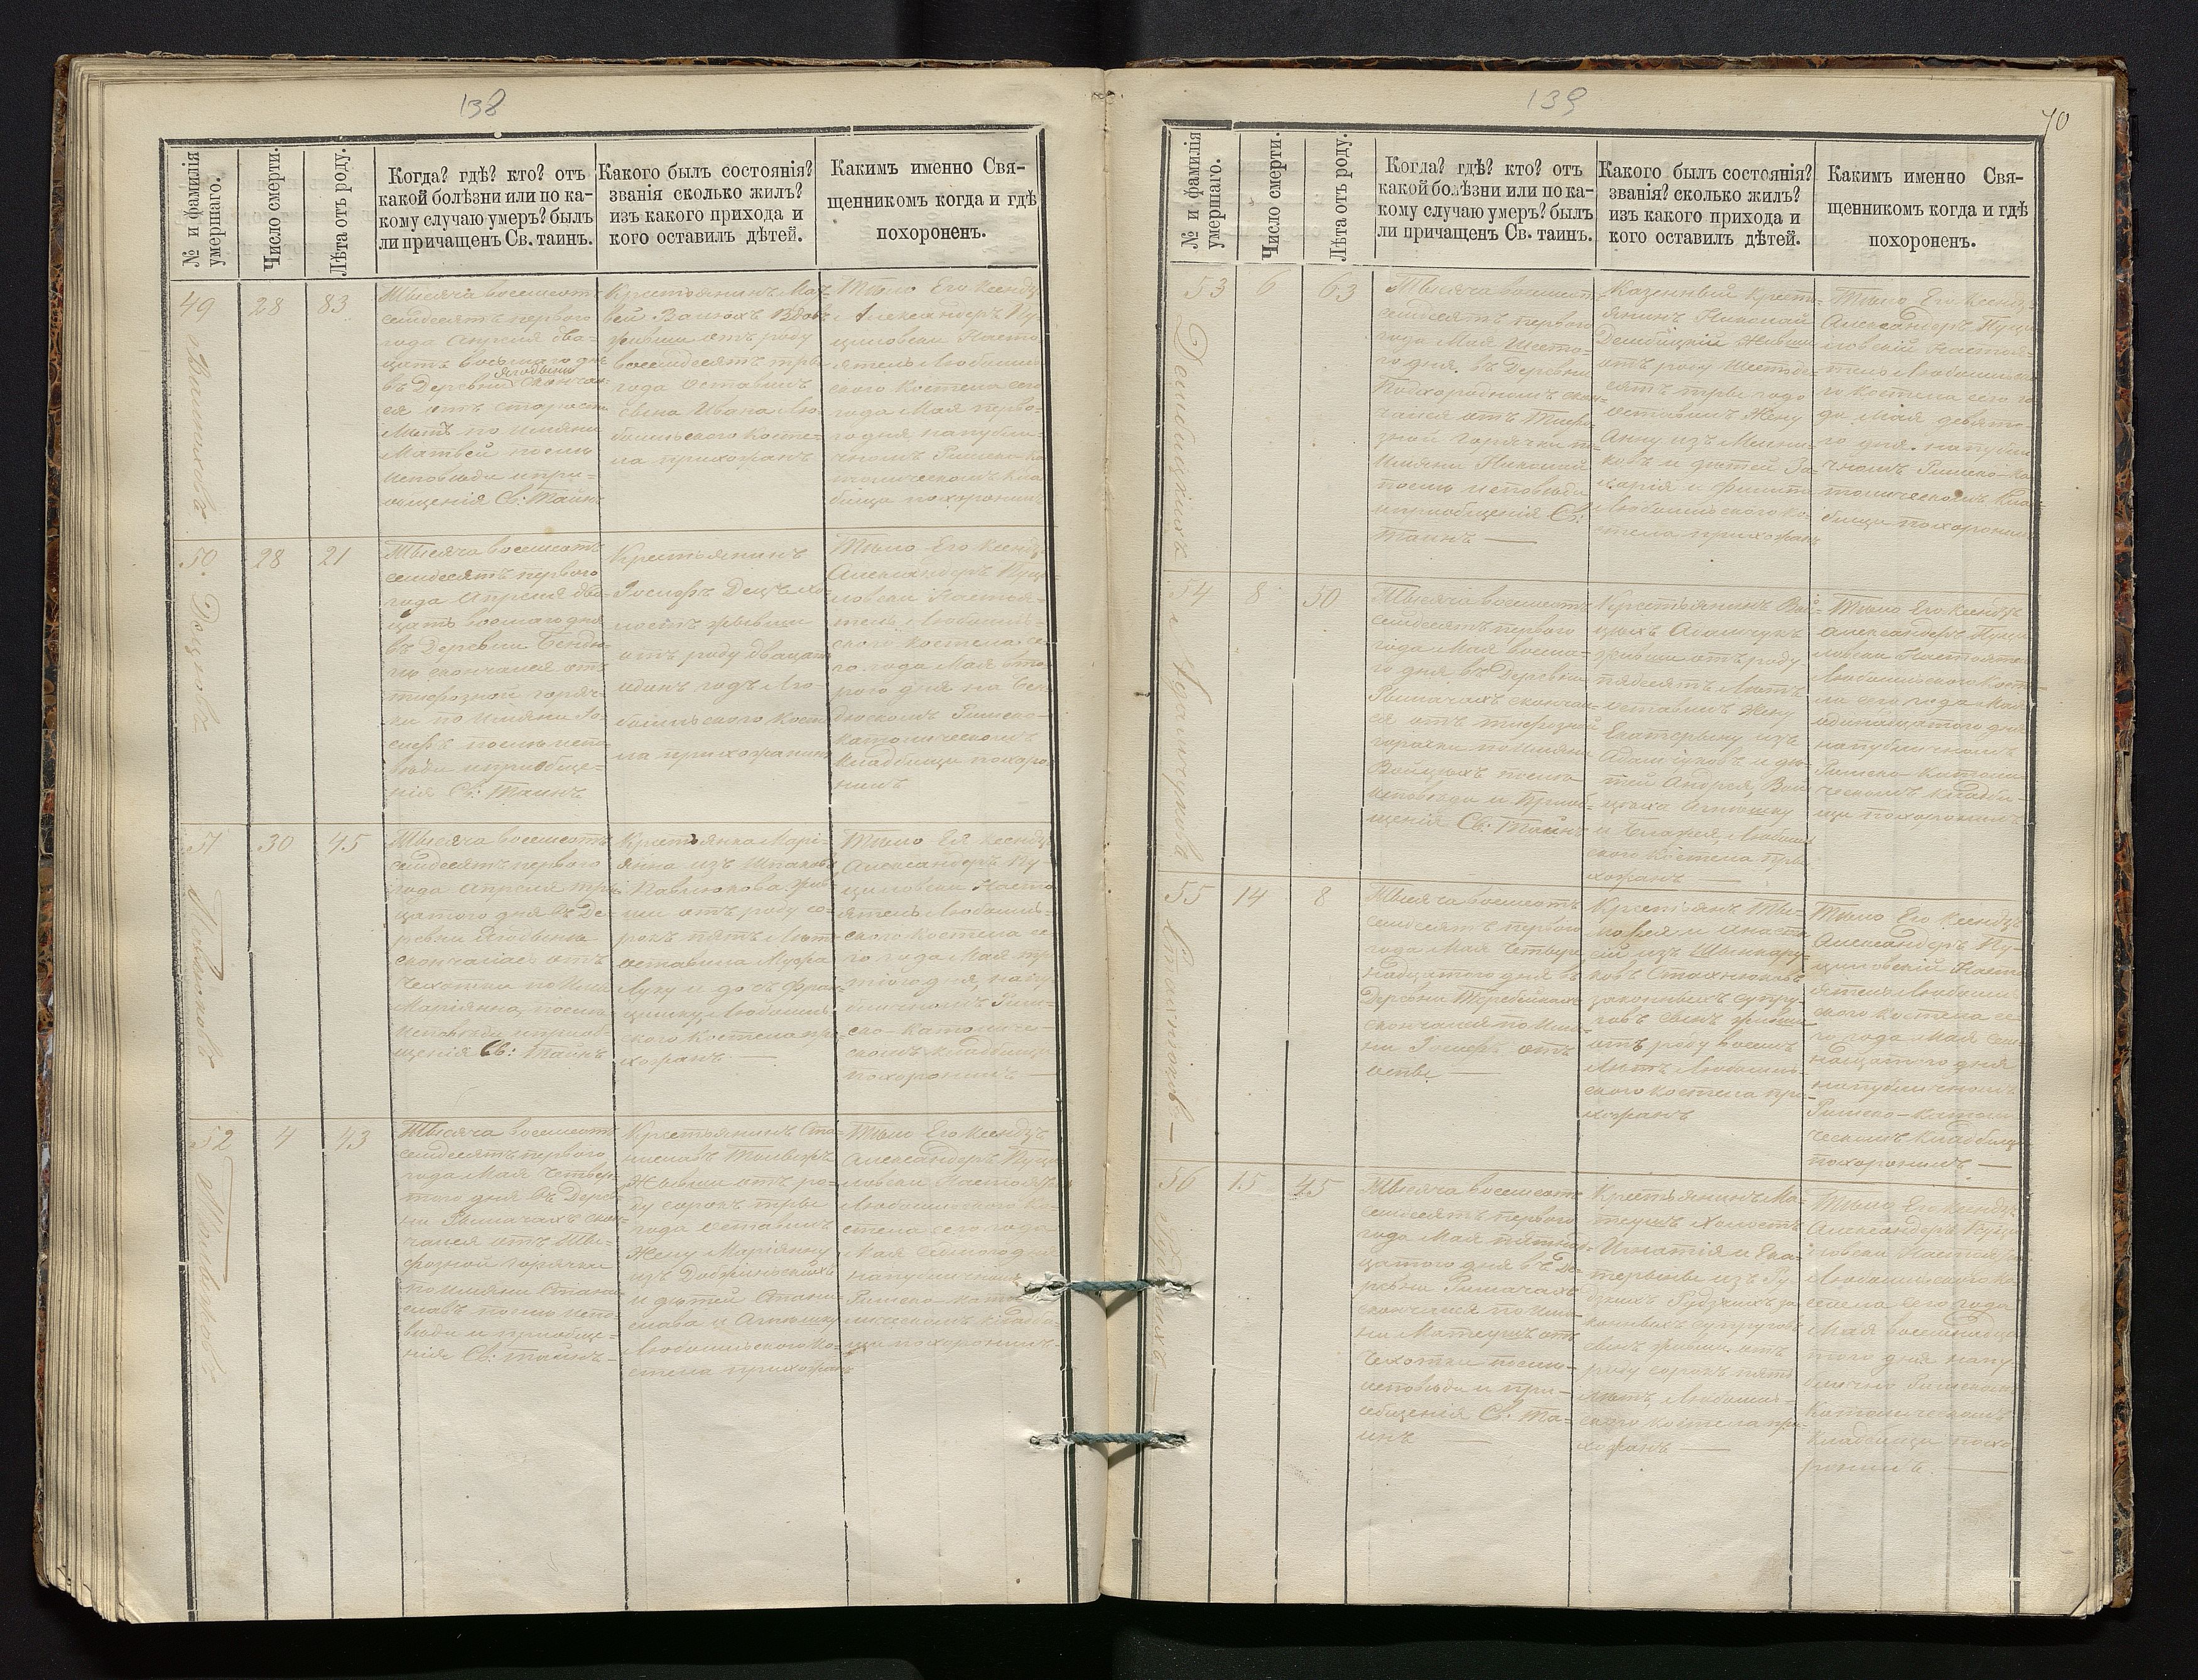 138
№ и фамилія умершаго.
Число смерти.
Лѣта отъ роду.
Когда? гдѣ? кто? отъ
какой болѣзни или по ка-
кому случаю умеръ? былъ
ли причащенъ Св. таинъ.
Какого былъ состоянія?
званія сколько жилъ?
изъ какого прихода и
кого оставилъ дѣтей.
Какимъ именно Свя-
щенникомъ когда и гдѣ
похороненъ.
49
28
83
Тысяча восемсотъ
семдесятъ перваго
года Апрѣля два-
цать восьмаго дня
въ Деревни Ягодынѣ скончал-
ся отъ старости
лѣтъ по имяни
Матвей послѣ
исповѣди и при-
общенія Св: Таинъ
Крестьянинъ Мат-
вей
живши отъ роду
восемдесятъ три
года оставилъ
сына Ивана Лю-
бомльского косте-
ла прихожанъ
Тѣло Его Ксендзъ
Александръ Пу-
циловски Насто-
ятель Любомль-
ского Костела сего
года Мая перва-
го дня на публи-
чномъ Римско-ка-
толическомъ кла-
бища похоронилъ
50.
28
21
Тысяча восемсотъ
семдесятъ перваго
года Апрѣля два-
цать восмаго дня
въ Деревни
скончался отъ
тифозной горяч-
ки по имяни Іо-
сифъ послѣ испо-
вѣди и приобще-
нія Св: Таинъ
Крестьянинъ
Іосифъ Децъ хо-
лостъ живши
отъ роду двацать
одинъ годъ Лю-
бомльского косте-
ла прихожанинъ
Тѣло Его Ксендзъ
Александръ Пуци-
ловски Настоя-
тель Любомль-
ского костела се-
го года Мая вто-
рого дня на
Римско-
католическомъ
кладбищи похоро-
нилъ
51
30
45
Тысяча восемсотъ
семдесятъ перваго
года Апрѣля три-
цатого дня въ Де-
ревни Ягодынѣ
скончалась отъ
Чехотки по имя
Маріянна послѣ
исповѣди и приоб-
щенія Св: Таинъ
Крестьянка Марі-
янна изъ
Павлюкова жив-
ши отъ роду со-
рокъ пять лѣтъ
оставила Мужа
Луку и дочь Фран-
цишку, Любомль-
ского костела при-
хожанъ —
Тѣло Ея Ксендзъ
Александръ Пу-
циловски Насто-
ятель Любомль-
ского костела се-
го года Мая тре-
тіого дня, на пу-
бличномъ Рим-
ско-католиче-
скомъ кладбищи
похоронилъ —
52
4
43
Тысяча восемсотъ
семдесятъ перваго
года Мая четвер-
того дня въ Дерев-
ни Рымачахъ скон-
чался отъ ти-
фозной горячки
по имяни Стани-
славъ послѣ испо-
вѣди и приобще-
нія Св: таинъ —
Крестьянинъ Ста-
ниславъ
Живши отъ ро-
ду сорокъ три
года оставилъ
Жену Маріянну
изъ
и дѣтей Стани-
слава и Агнѣшку
Любомльского ко-
стела прихожанъ
Тѣло Его Ксендзъ
Александръ Пуци-
ловски Настоятель
Любомльского Ко-
стела сего года
Мая Семого дня
на публичномъ
Римско-като-
лическомъ кладби-
щи похоронилъ —
139
70
№ и фамилія умершаго.
Число смерти.
Лѣта отъ роду.
Когда? гдѣ? кто? отъ
какой болѣзни или по ка-
кому случаю умеръ? былъ
ли причащенъ Св. таинъ.
Какого былъ состоянія?
званія? сколько жилъ?
изъ какого прихода и
кого оставилъ дѣтей.
Какимъ именно Свя-
щенникомъ когда и гдѣ
похороненъ.
53
6
63
Дембицкихъ
Тысяча восемсотъ
семдесятъ перваго
года Мая Шесто-
го дня, въ Деревни
Подгородномъ скон-
чался отъ Тифо-
зной горячки по
имяни Николай
послѣ исповѣди
и приобщенія Св:
Таинъ —
Казенный Кресть-
янинъ Николай
Дембицкій живши
отъ роду Шестьде-
сятъ три года
оставилъ Жену
Анну изъ
и дѣтей За-
харія и Филипа
Любомльского ко-
стела прихожанъ
Тѣло Его Ксендзъ
Александръ Пуци-
ловскій Настоя-
тель Любомльско-
го костела сего го-
да Мая девято-
го дня. на публи-
чномъ Римско-ка-
толическомъ Клад-
бища похоронилъ
54
8
50
Адамчуковъ
Тысяча восемсотъ
семдесятъ перваго
года Мая восма-
го дня, въ Деревни
Рымачахъ скончал-
ся отъ тифозной
горячки по имяни
Войцѣхъ послѣ
исповѣди и Приоб-
щенія Св: Таинъ
Крестьянинъ Вой-
цѣхъ Адамчукъ
живши отъ роду
пядесятъ лѣтъ
оставилъ Жену
Екатерыну изъ
Адамчуковъ и дѣ-
тей Андрея, Вой-
цѣха Агнѣшку
и Блажея, Любомль-
ского костела при-
хожанъ —
Тѣло Его Ксендзъ
Александръ Пуци-
ловски Настоятель
Любомльского Косте-
ла сего года Мая
одинадцатого дня
на публичномъ
Римско-Католи-
ческомъ кладби-
щи похоронилъ
55
14
8
Стахнюковъ —
Тысяча восемсотъ
семдесятъ перваго
года Мая Четыр-
надцатого дня въ
Деревни Теребейкахъ
скончался по имя-
ни Іосифъ отъ
оспы —
Крестьянъ Ти-
мофея и Анаста-
сіи изъ
Стахнюковъ
законныхъ супру-
говъ сынъ живши
отъ роду восемъ
лѣтъ Любомль-
ского костела при-
хожанъ
Тѣло Его Ксендзъ
Александръ Пу-
циловскій Насто-
ятель Любомль-
ского костела се-
го года Мая сем-
надцатого дня
на публичномъ
Римско-католи-
ческомъ Кладбищи
похоронилъ —
56
15
45
Тысяча восемсотъ
семдесятъ перваго
года Мая пятнад-
цатого дня въ Де-
ревни Рымачахъ
скончался по имя-
ни Матеушъ отъ
Чехотки послѣ
исповѣди и при-
общенія Св: Та-
инъ —
Крестьянинъ Ма-
теушъ холостъ
Игнатія и Ека-
терыны изъ
законныхъ супруговъ
сынъ живши отъ
роду сорокъ пять
лѣтъ, Любомль-
ского костела при-
хожанъ —
Тѣло Его Ксендзъ
Александръ Пуци-
ловски Настоятель
Любомльского ко-
стела сего года
Мая восемнадца-
того дня на пу-
блично Римско
Католическомъ
кладбищи похо-
ронилъ. —